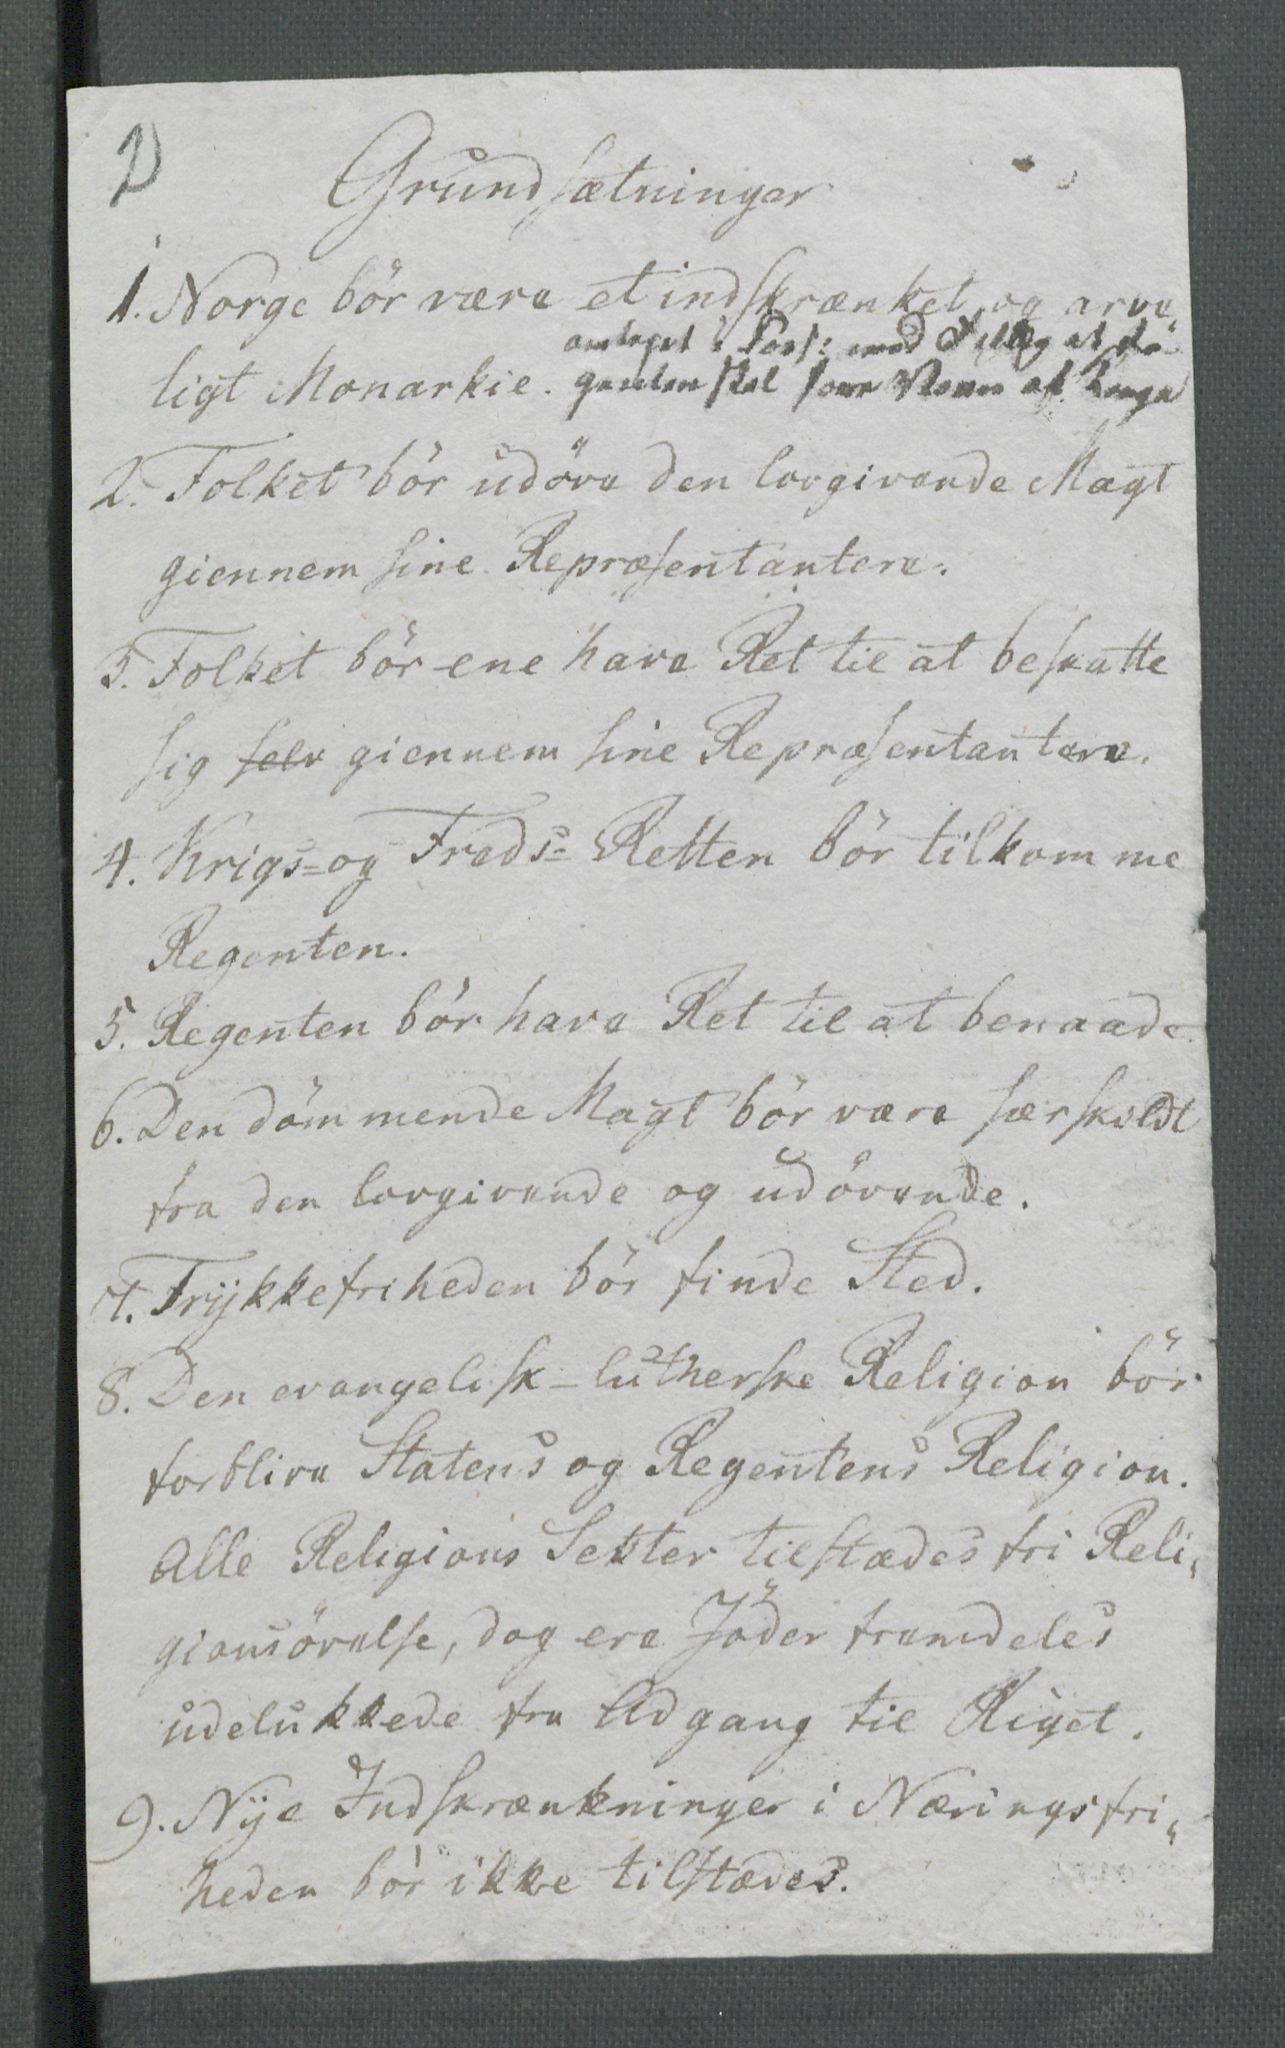 D
Grundsætninger
1. Norge bör være et indskrænket og arve„
ligt Monarkie.
antaget i Pos: med Tillæg at Re-
genten skal föere Navn af Konge
2. Folket bör udöve den lovgivende Magt
giennem sine Repræsentantere.
3. Folket bör ene have Ret til at beskatte
sig selv giennem sine Repræsentantere.
4. Krigs= og Freds= Retten bör tilkomme
Regenten.
5. Regenten bör have Ret til at benaade
6. Den dömmende Magt bör være særskildt
fra den lovgivende og udövende.
7. Trÿkkefriheden bör finde Sted.
8. Den evangelisk-lutherske Religion bör
forblive Statens og Regentens Religion.
Alle Religions Sekter tilstædes fri Reli„
gionsövelse, dog ere Jöder fremdeles
udelukkede fra Adgang til Riget.
9. Nÿe Indskrænkninger i Næringsfri„
heden bör ikke tilstædes.